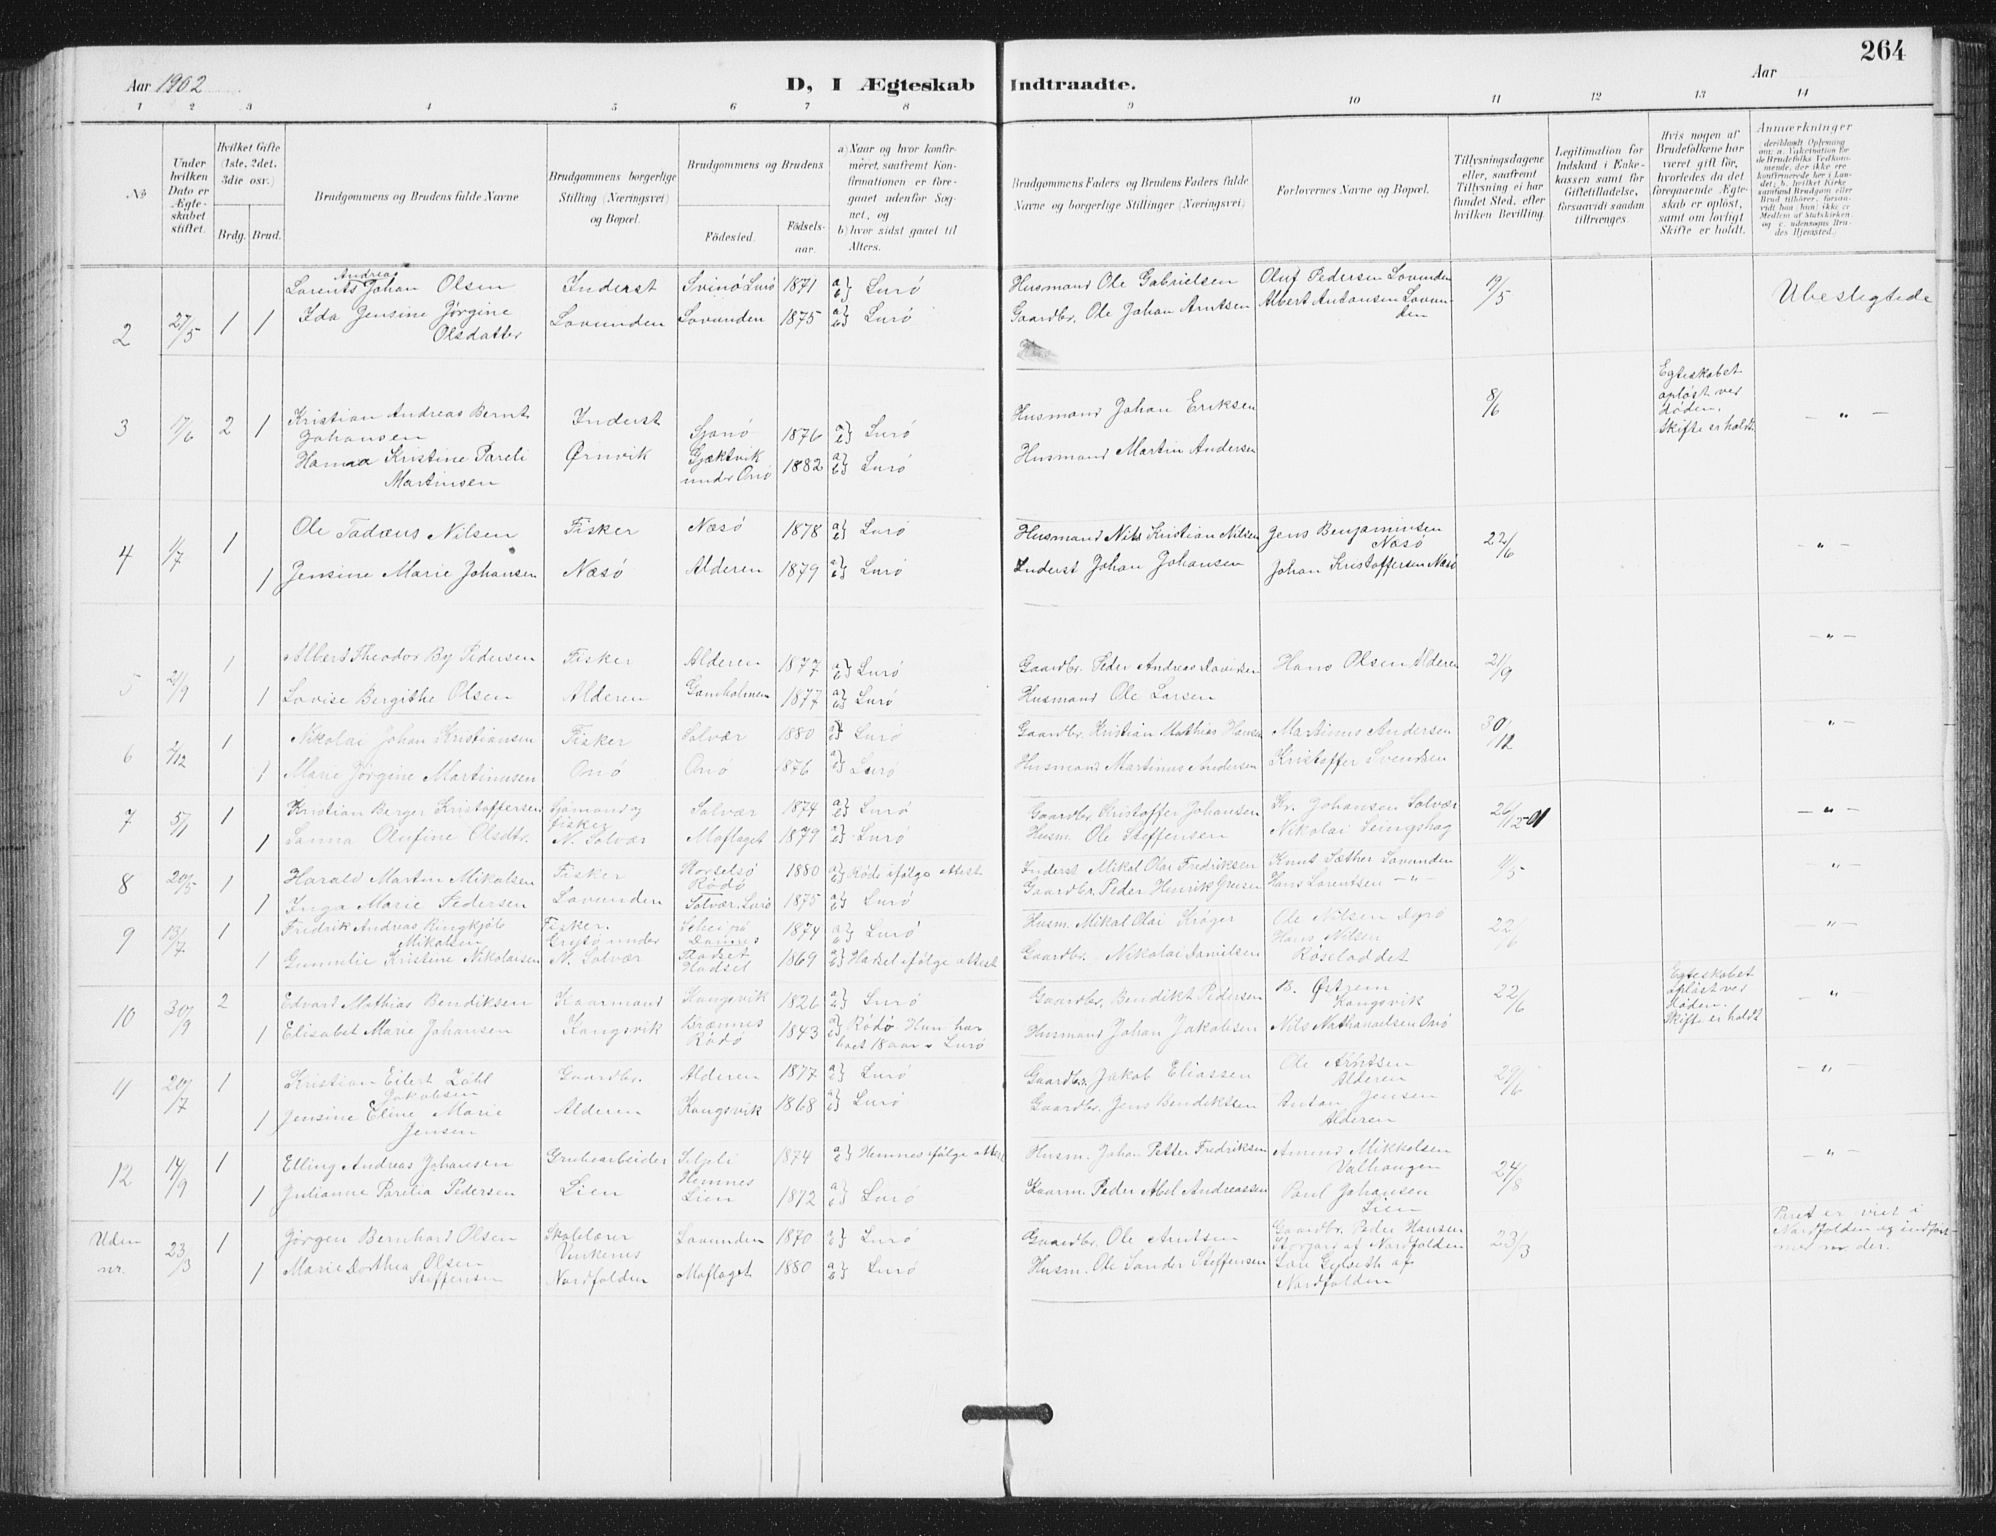 264
Aar 1902
D, I Ægteskab Indtraadte.
Aar
1 2 3 4 5 6 7 8 9 10 11 12 13 14
No
Under hvilken Dato er Ægteskabet stiftet.
Hvilket Gifte (1ste, 2det, 3die osv.)
Brdg. Brud.
Brudgommens og Brudens fulde Navne
Brudgommens borgerlige Stilling (Næringsvei) og Bopæl.
Brudgommens og Brudens
Fødested. Fødselsaar.
a) Naar og hvor konfirmeret, saafremt Konfirmationen er foregaaet udenfor Sognet, og
b) hvor sidst gaaet til Alters.
Brudgommens Faders og Brudens Faders fulde Navne og borgerlige Stillinger (Næringsvei)
Forlovernes Navne og Bopæl.
Tillysningsdagene eller, saafremt Tillysning ei har fundet Sted, efter hvilken Bevilling.
Legitimation for Indskud i Enkekassen samt for Giftetilladelse, forsaavidt saadan tiltrænges.
Hvis nogen af Brudefolkene har været gift før, hvorledes da det foregaaende Ægteskab er opløst, samt om lovligt Skifte er holdt.
Anmærkninger
deriblandt Oplysning om: a. Vakcination for de Brudefolks Vedkommende, der ikke ere konfirmerede her i Landet; b. hvilket Kirkesamfund Brudgom eller Brud tilhører, forsaavidt han (hun) ikke er Medlem af Statskirken, og c. udensogns Brudes Hjemsted.
2 27/5 1 1 Lorents Andreas Johan Olsen Inderst Svinö Lurö 1871 a} b} Lurö Husmand Ole Gabrielsen Oluf Pedersen Lovunden 19/5 Ubeslegtede
Ida Jensine Jørgine Olsdatter Lovunden Lovunden 1875 a} b} Lurö Gaardbr. Ole Johan Arntsen Albert Antonsen Lovunden
3 17/6 2 1 Kristian Andreas Bernt Johansen Inderst Sjonö 1876 a} b} Lurö Husmand Johan Eriksen 8/6 Egteskabet opløst ved døden. Skifte er holdt. — „ —
Hanna Kristine Pareli Martinsen Ørnvik Gjæktvik under Onö 1882 a} b} Lurö Husmand Martin Andersen
4 1/7 1 Ole Tadæus Nilsen Fisker Næsö 1878 a} b} Lurö Husmand Nils Kristian Nilsen Jens Benjaminsen Næsö 22/6 — „ —
1 Jensine Marie Johansen Næsö Alderen 1879 a} b} Lurö Inderst Johan Johansen Johan Kristoffersen Næsö
5 21/9 1 Albert Theodor By Pedersen Fisker Alderen 1877 a} b} Lurö Gaardbr. Peder Andreas Davidsen Hans Olsen Alderen 21/9 — „ —
1 Lovise Bergithe Olsen Alderen Gamholmen 1877 a} b} Lurö Husmand Ole Larsen
6 1 Nikolai Johan Kristiansen Fisker Solvær 1880 Lurö Gaardbr. Kristian Mathias Hansen Martinus Andersen 30/12 „ —
1 Marie Jørgine Martinusen Onö Onö 1876 a} b} Lurö Husmand Martinus Andersen Kristoffer Svendsen
7 5/1 1 Kristian Berger Kristoffersen Sjömand og fisker Solvær 1874 a} b} Lurö Gaardbr. Kristoffer Johansen Kr. Johansen Solvær 26/12-01 — „ —
1 Sanna Olufine Olsdtr. N. Solvær Moflaget 1879 a} b} Lurö Husm. Ole Steffensen Nikolai
8 20/5 1 Harald Martin Mikalsen Fisker Storselsö Rödö 1880 a} b} Rödö ifølge attest Inderst Mikal Olai Fredriksen Knut Sæther Lovunden 11/5 — „ —
1 Inga Marie Pedersen Lovunden Solvær, Lurö 1875 a} b} Lurö Gaardbr. Peder Henrik Hans Lorentsen — „ —
9 13/7 1 Fredrik Andreas Ringkjöb Mikalsen Fisker. 1874 Lurö Husm. Mikal Olai Kröger Ole Nilsen Dyrö 22/6 „ —
1 Gunnelie Kristine Nikolaisen N. Solvær Hadsel 1869 a} b} Hadsel ifølge attest Gaardbr. Nikolai Danielsen Hans Nilsen
10 30/9 2 Edvard Mathias Bendiksen Kaarmand Kongsvik 1826 a} b} Lurö Gaardbr. Bendikt Pedersen B. Kongsvik 22/6 Egteskabet opløst ved døden. Skifte er holdt — „ —
1 Elisabet Marie Johansen Kongsvik Rödö 1843 a} b} Rödö. Hun har boet 18 aar i Lurö Husmand Johan Jakobsen Nils Nathanaelsen Onö
11 20/7 1 Kristian Eilert Zahl Jakobsen Gaardbr. Alderen 1877 a} b} Lurö Gaardbr. Jakob Eliassen Ole Arntsen Alderen 29/6 — „ —
1 Jensine Eline Marie Jensen Alderen Kongsvik 1868 a} b} Lurö Gaardbr. Jens Bendiktsen Anton Jensen Alderen
12 14/9 1 Elling Andreas Johansen Grubearbeider Seljeli Hemnes 1874 a} b} Hemnes ifølge attest Husm. Johan Petter Fredriksen Amund Mikkelsen Valhaugen 24/8 — „ —
1 Julianne Parelia Pedersen Lien Lien 1872 a} b} Lurö Kaarm. Peder Abel Andreassen Paul Johansen Lien
Uden nr. 23/3 1 Jørgen Bernhard Olsen Skolelærer Lovunden 1870 a} b} Lurö Gaardbr. Ole Arntsen Gaardbr. Peder Hansen Storjord af Nordfolden 23/3 Paret er viet i Nordfolden og indført med nr. der.
1 Marie Dorthea Olsen Steffensen Nordfolden Moflaget 1880 a} b} Lurö Husm. Ole Sander Steffensen Lars Gylseth af Nordfolden